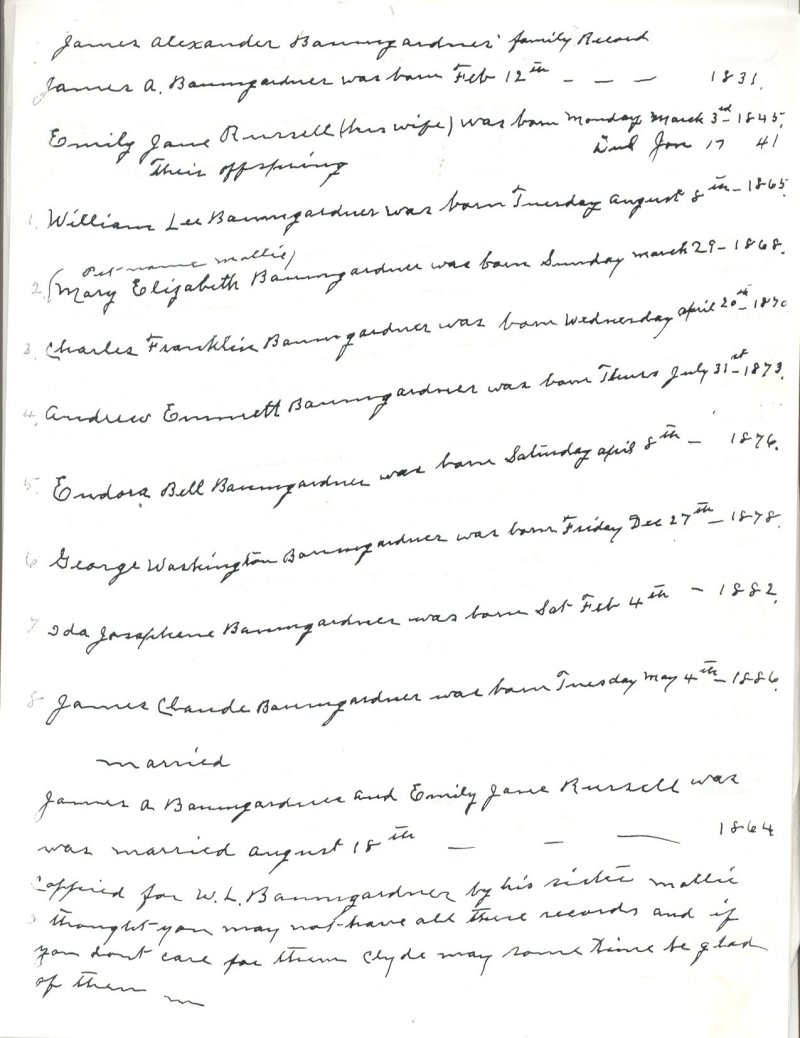 James Alexander Baumgardners' family Record
James A. Baumgardner was born Feb 12th — — — 1831.
Emily Jane Russell (his wife) was born Monday March 3rd – 1845.
Died Jan 17 41
Their offspring
1. William Lee Baumgardner was born Tuesday August 8th – 1865.
Pet-name Mallie)
2. (Mary Elizabeth Baumgardner was born Sunday March 29 – 1868.
3. Charles Franklin Baumgardner was born Wednesday April 20th – 1870
4. Andrew Emmett Baumgardner was born Thurs July 31st – 1873.
5. Eudora Bell Baumgardner was born Saturday April 8th – 1876.
6 George Washington Baumgardner was born Friday Dec 27th – 1878.
7 Ida Josephene Baumgardner was born Sat Feb 4th – 1882.
8 James Claude Baumgardner was born Tuesday May 4th – 1886.
married
James A Baumgardner and Emily Jane Russell was
was married August 18th — — — 1864
Coppied for W. L. Baumgardner by his sister Mallie
thought you may not have all these records and if
you dont care for them Clyde may some time be glad
of them m